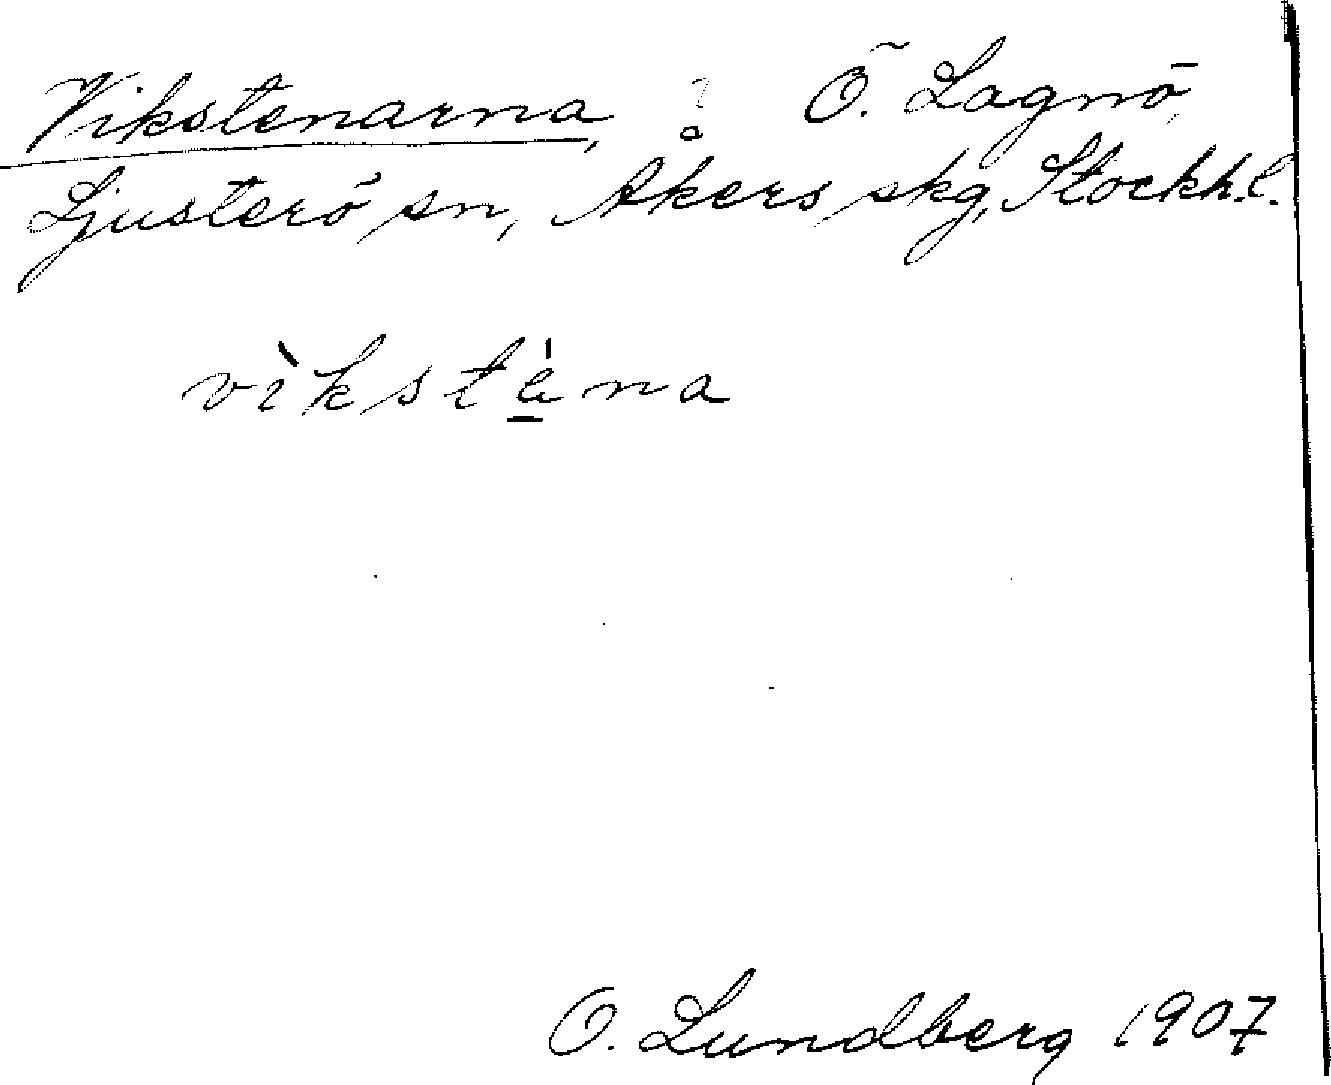 Vikstenarna, ? Ö. Lagnö,
Ljusterö sn, Åkers skg, Stockh.l.
vìksté̱na
O. Lundberg 1907